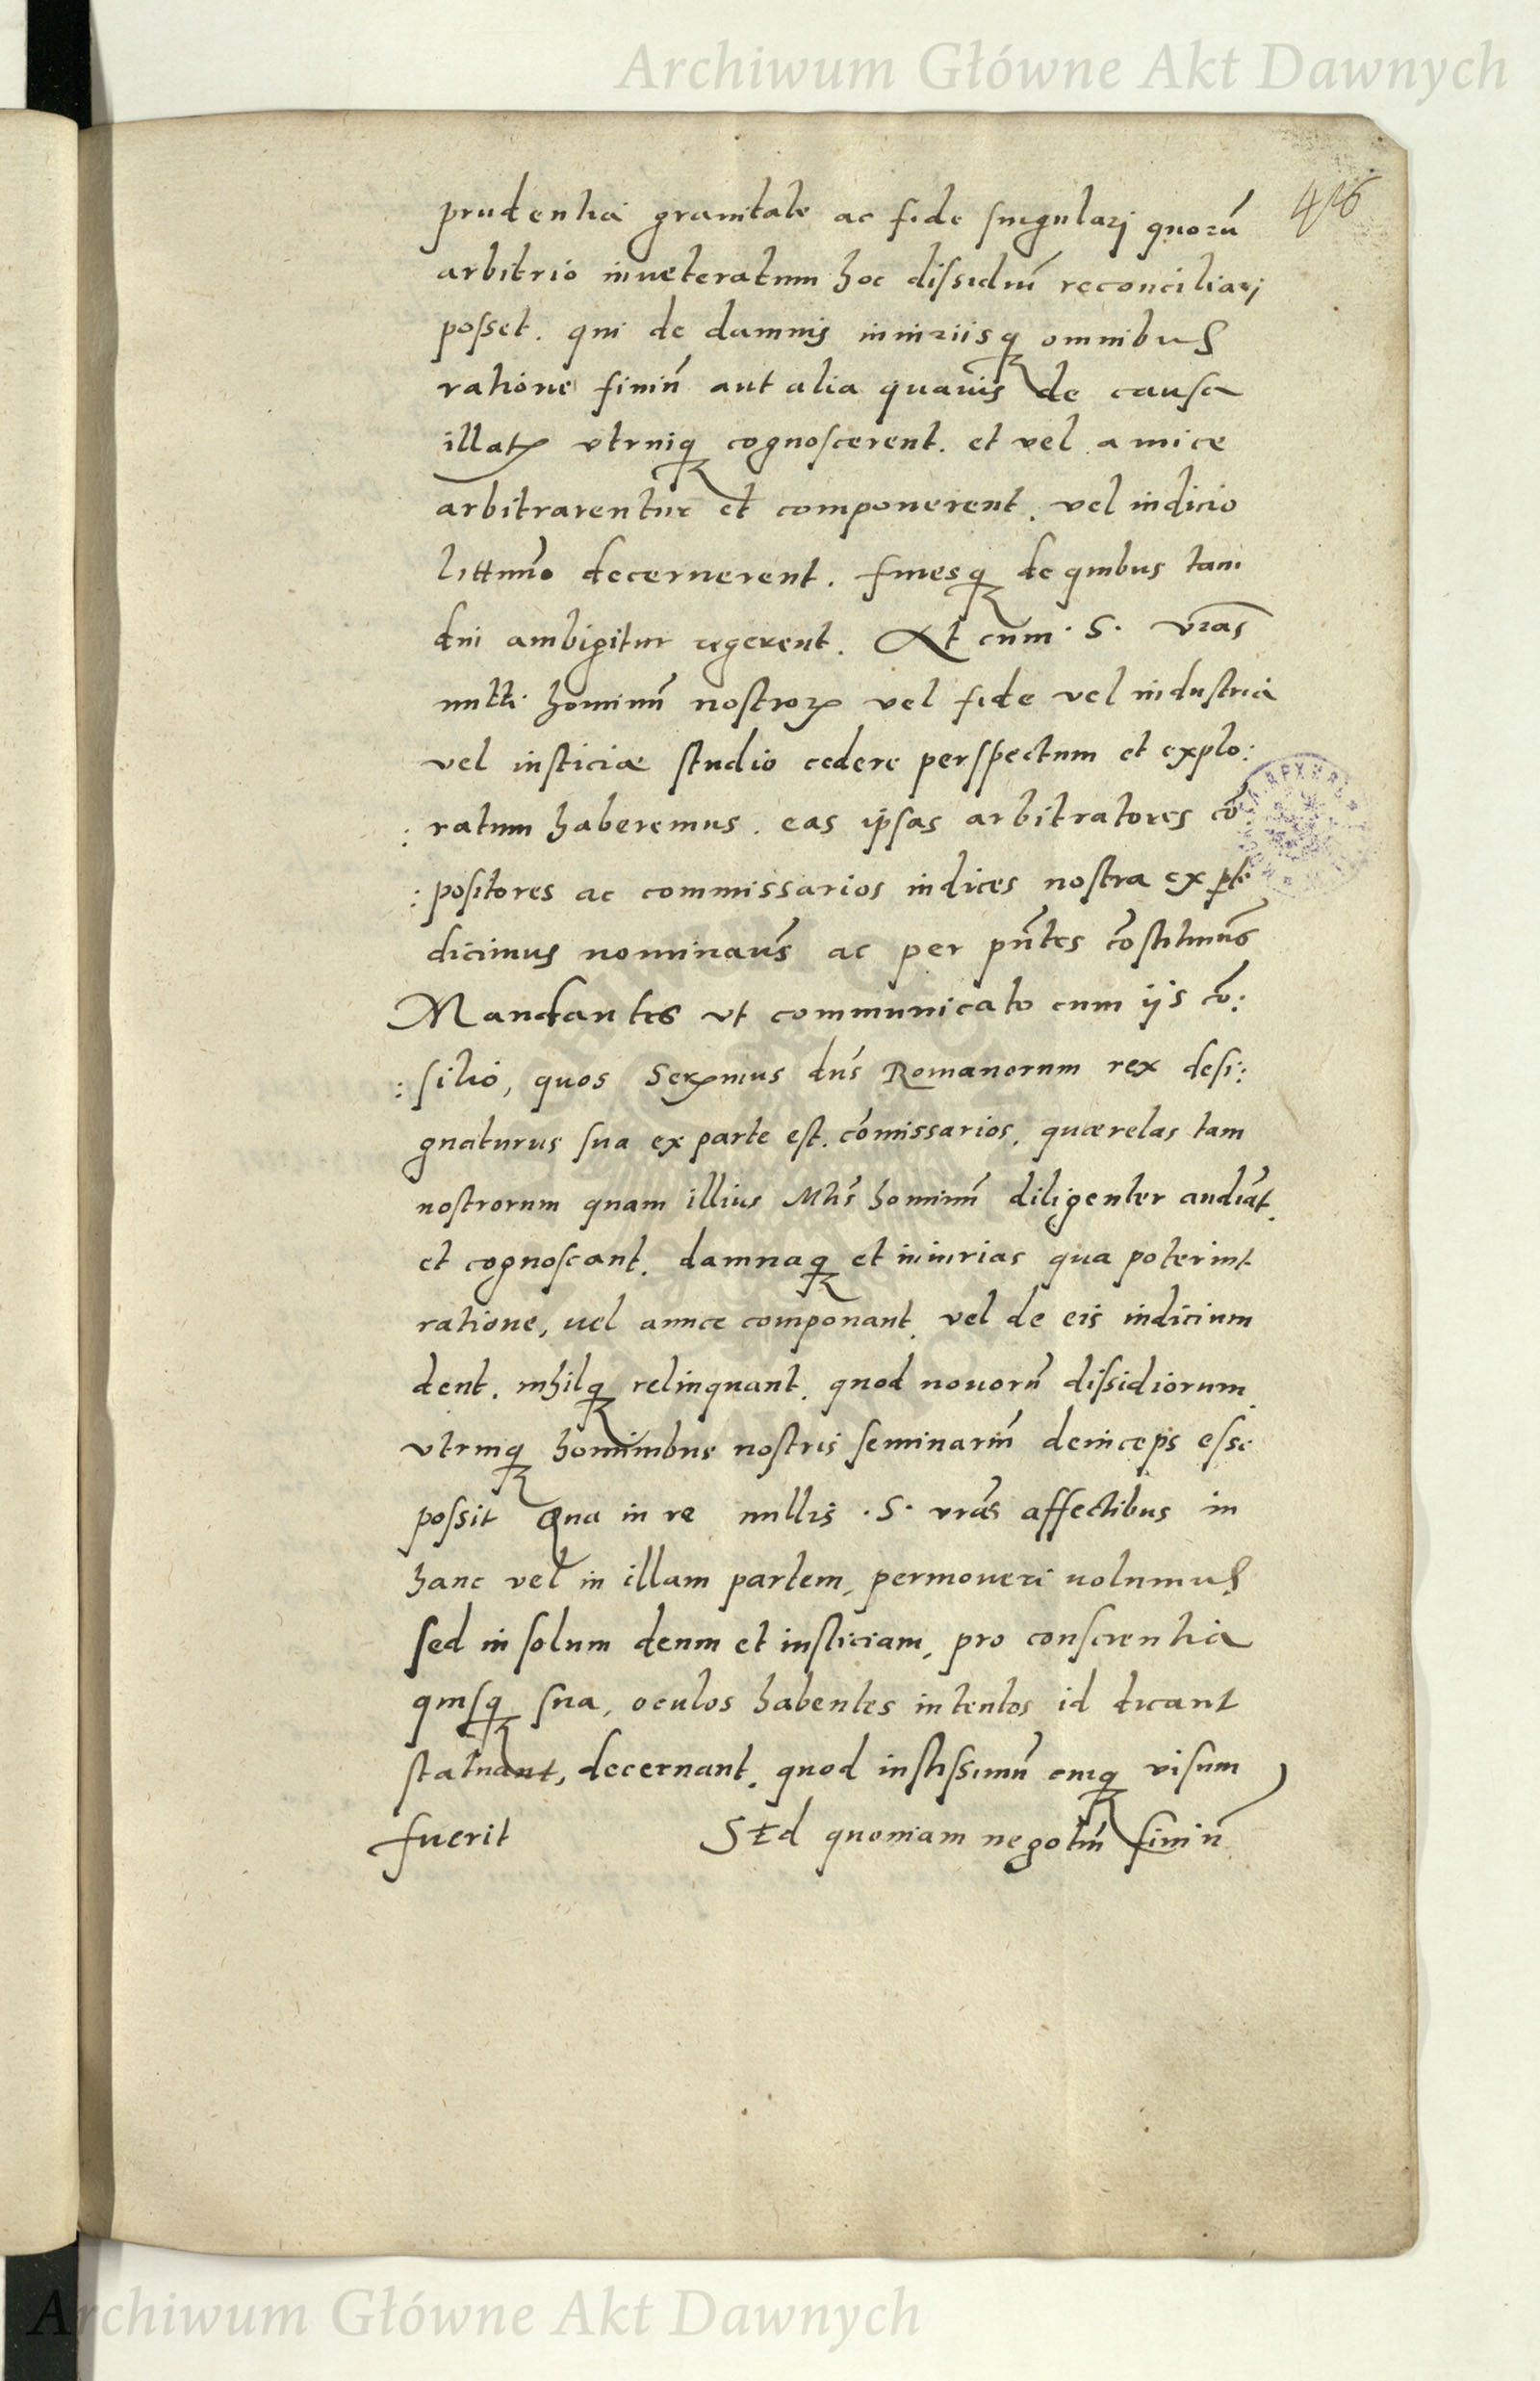 Archiwum Główne Akt Dawnych
416
prudentia grauitate ac fide singularj quorū
arbitrio inueteratum hoc dissidiū reconciliarj
posset. qui de damnis iniuriisq; omnibus
ratione finiū aut alia quauis de causa
illatꝝ vtrinq; cognoscerent. et vel amice
arbitrarentur et componerent. vel iudicio
decernerent. finesq; de quibus tam
diu ambigitur regerent. At cum . S. vr̄as
nulli hominū nostroꝝ vel fide vel industria
vel iusticiæ studio cedere perspectum et explo:
: ratum haberemus. eas ipsas arbitratores cō:
: positores ac commissarios iudices nostra ex ꝑte
dicimus nominam9 ac per pn̄tes cōstituim9
Mandantes vt communicato cum ijs cō:
: silio, quos Serꝰmus dn̄s Romanorum rex desi:
gnaturus sua ex parte est. cōmissarios, quærelas tam
nostrorum quam illius Mtis hominū diligenter audiāt.
et cognoscant. damnaq; et iniurias qua poterint
ratione, uel amice componant, vel de eis iudicium
dent. nihilq; relinquant, quod nouorū dissidiorum
vtrinq; hominibus nostris seminariū deinceps esse
possit Qua in re nullis . S. vrās affectibus in
hanc vel in illam partem, permoueri uolumus
sed in solum deum et iusticiam, pro conscientia
quisq; sua, oculos habentes intentos id dicant
statuant, decernant, quod iustissimū cuiq; visum
fuerit Sed quoniam negotiū finiū
Archiwum Główne Akt Dawnych